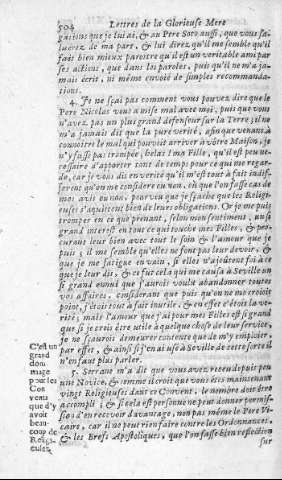 504 Lettres de la Glorieuse Mere
gations que je lui ai, & au Pere Soto aussi, que vous sa-
luërez de ma part, & lui direz qu'il me semble qu'il
fait bien mieux paroitre qu'il est un veritable ami par
ses actions, que dans les paroles, puis qu'il ne m'a ja-
mais écrit, ni même envoié de simples recommanda-
tions.
4. Je ne sçai pas comment vous pouvez dire que le
Pere Nicolas vous a mise mal avec moi, puis que vous
n'avez pas un plus grand defenseur sur la Terre; il ne
m'a jamais dit que la pure verité, afin que venant à
connoitre le mal qui pouvoit arriver à vôtre Maison, je
n'y fusse pas trompée, helas! ma Fille, qu'il est peu ne-
cessaire d'apporter tant de temps pour ce qui me regar-
de, car je vous dis en verité qu'il m'est tout à fait indif-
ferent qu'on me considere ou non, où que l'on fasse cas de
moi avis ou non, pourveu que je sçache que les Religi-
euses s'aquittent bien de leurs obligations. Or je me puis
tromper en ce que prenant, selon mon sentiment, un si
grand interest en tout ce qui touche mes Filles, & pro-
curant leur bien avec tout le soin & l'amour que je
puis; il me semble qu'elles ne font pas leur devoir, &
que je me fatigue en vain, si elles n'ajoûtent foi à ce
que je leur dis, & ce fut cela qui me causa à Seville un
si grand ennui que j'aurois voulu abandonner toutes
vos affaires, considerant que puis qu'on ne me croioit
point, j'étois tout à fait inutile, & en effet c'étoit la ve-
rité; mais l'amour que j'ai pour mes Filles est si grand
que si je crois être utile à quelque chose de leur service,
je ne sçaurois demeurer contente que de m'y emploier,
par effet, & ainsi si j'en ai usé à Seville de cette sorte il
n'en faut plus parler.
5. Serrane m'a dit que vous avez receu depuis peu
une Novice, & comme il croit que vous êtes maintenant
vingt Religieuses dans ce Convent, le nombre doit être
accompli; & si cela est personne ne peut donner permis-
sion d'en recevoir davantage, non pas même le Pere Vi-
caire, car il ne peut rien faire contre les Ordonnances,
& les Brefs Apostoliques, que l'on fasse bien reflection
sur
C'est un
grand
dom
mage
pour les
Con
vens
que d'y
avoir
beau-
coup de
Religi-
euses